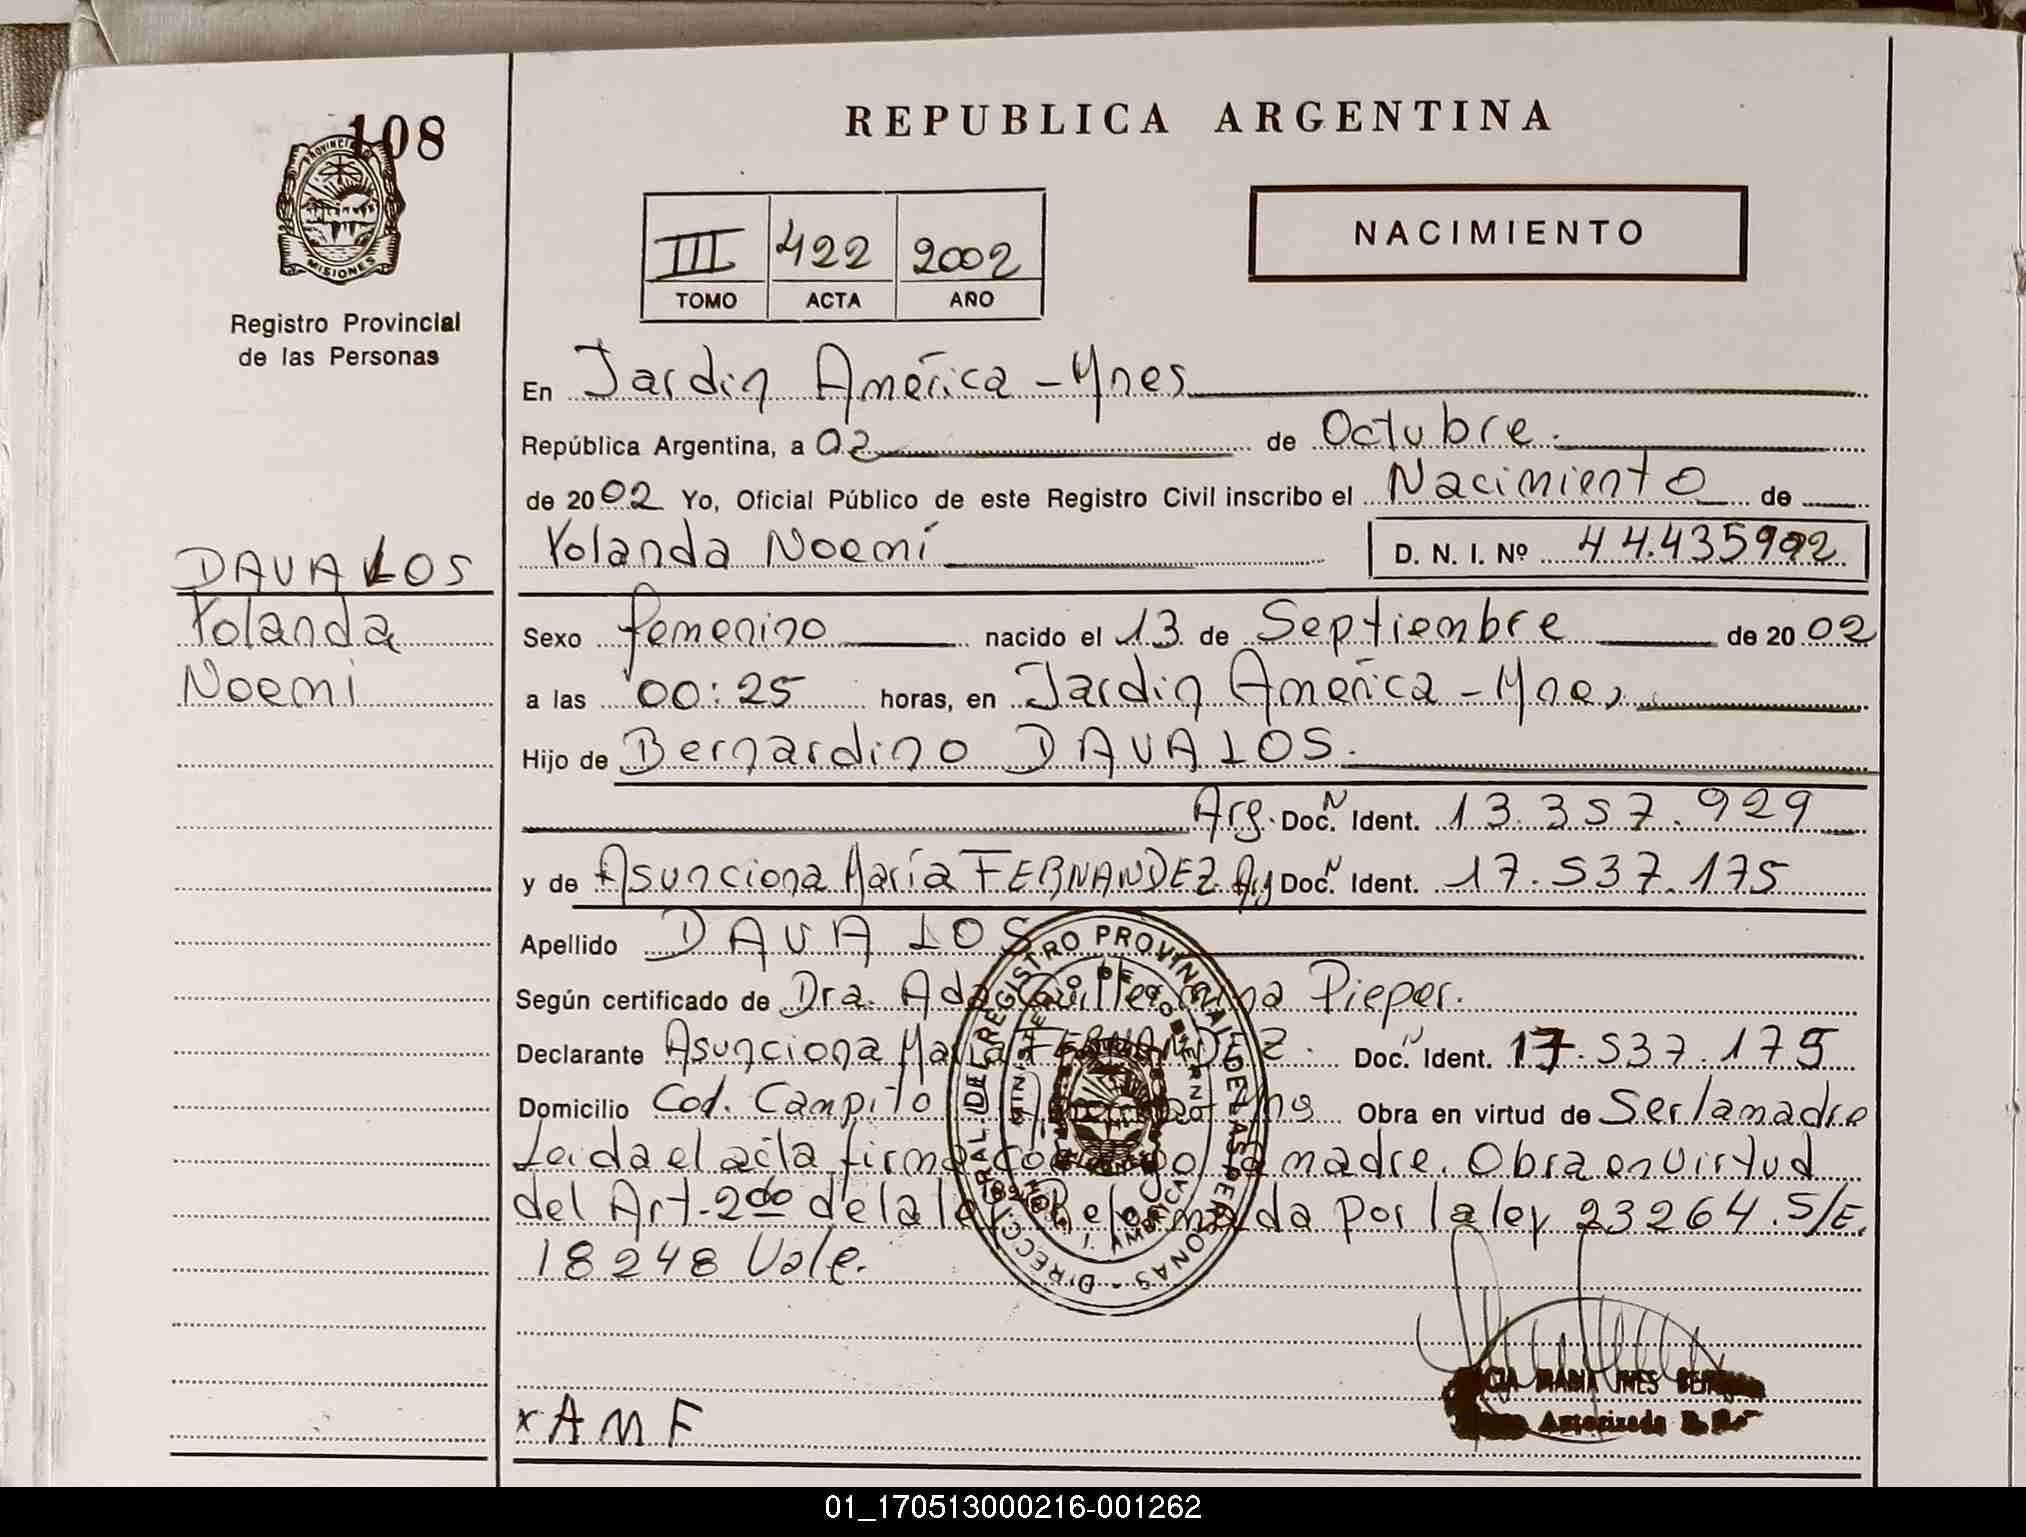 108
PROVINCIA D
MISIONES
Registro Provincial
de las Personas
DAVALOS
Yolanda
Noemi
REPUBLICA ARGENTINA
III 422 2002
TOMO ACTA AÑO
NACIMIENTO
En Jardin América - Mnes
República Argentina, a 02 de Octubre.
de 2002 Yo, Oficial Público de este Registro Civil inscribo el Nacimiento de
Yolanda Noemí D. N. I. Nº 44.435992
Sexo femenino nacido el 13 de Septiembre de 2002
a las 00:25 horas, en Jardin América - Mnes
Hijo de Bernardino DAVALOS.
Arg. Doc. N Ident. 13.357.929
y de Asunciona María FERNANDEZ Arg Doc. N Ident. 17.537.175
Apellido DAVALOS
Según certificado de Dra. Ada Guillermina Pieper.
Declarante Asunciona María FERNANDEZ. Doc. N Ident. 17.537.175
Domicilio Cod. Campito Obra en virtud de Ser la madre
Leida el acta firma la madre. Obra en virtud
del Art. 2do de la ley Reformada por la ley 23264. S/E.
18248 Vale.
DIRECC. GRAL. DEL REGISTRO PROVINCIAL DE LAS PERSONAS
MINISTERIO DE GOBIERNO
J. AMERICA
MARIA INES
Autorizada
x AMF
01_170513000216-001262